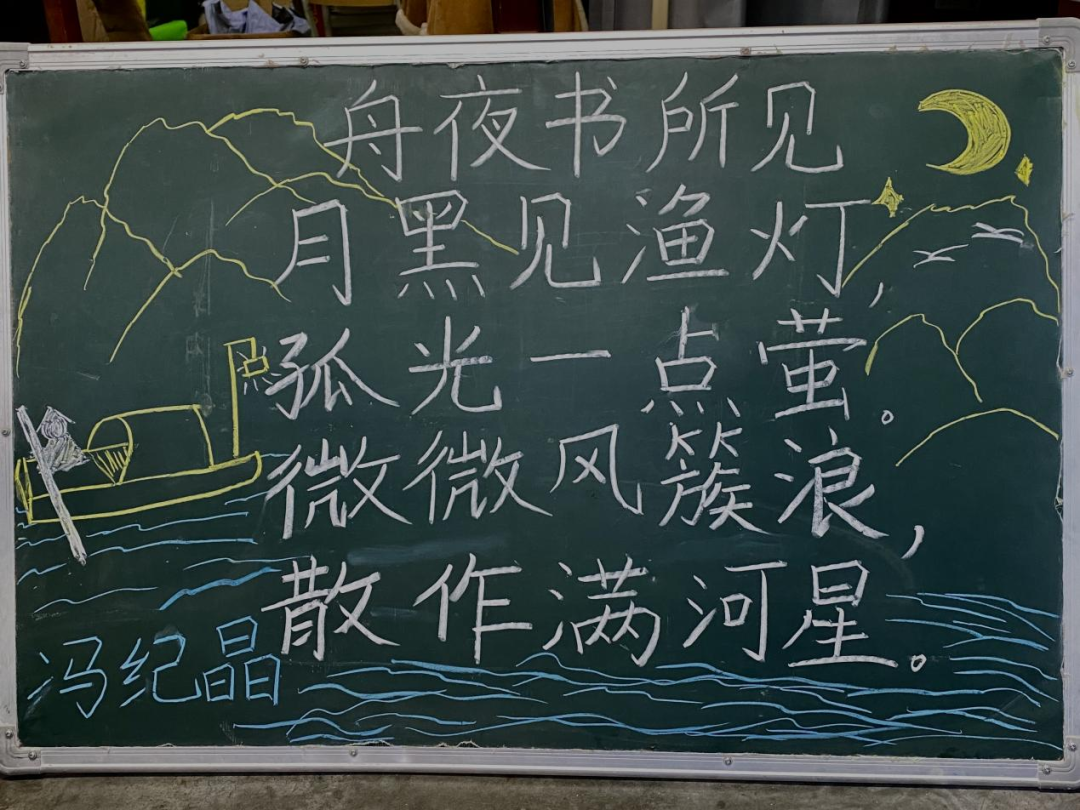 舟夜书所见
月黑见渔灯,
孤光一点萤。
微微风簇浪,
散作满河星。
冯纪晶